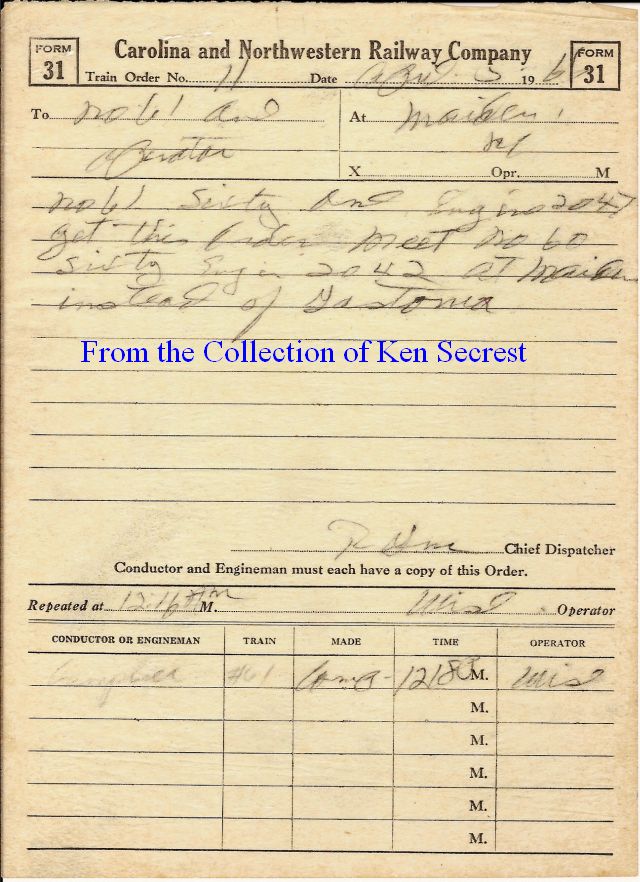 FORM 31
Carolina and Northwestern Railway Company
FORM 31
Train Order No. 11 Date April 3 196
To No 61 and At Maiden
Operator
X Opr. M
No 61 Sixty One Engine 2047
get this Order Meet No 60
Sixty Engin 2042 at Maiden
instead of Gastonia
From the Collection of Ken Secrest
Chief Dispatcher
Conductor and Engineman must each have a copy of this Order.
Repeated at 12:16 M. Operator
CONDUCTOR OR ENGINEMAN TRAIN MADE TIME OPERATOR
Campbell #61 Comp 1218 M.
M.
M.
M.
M.
M.